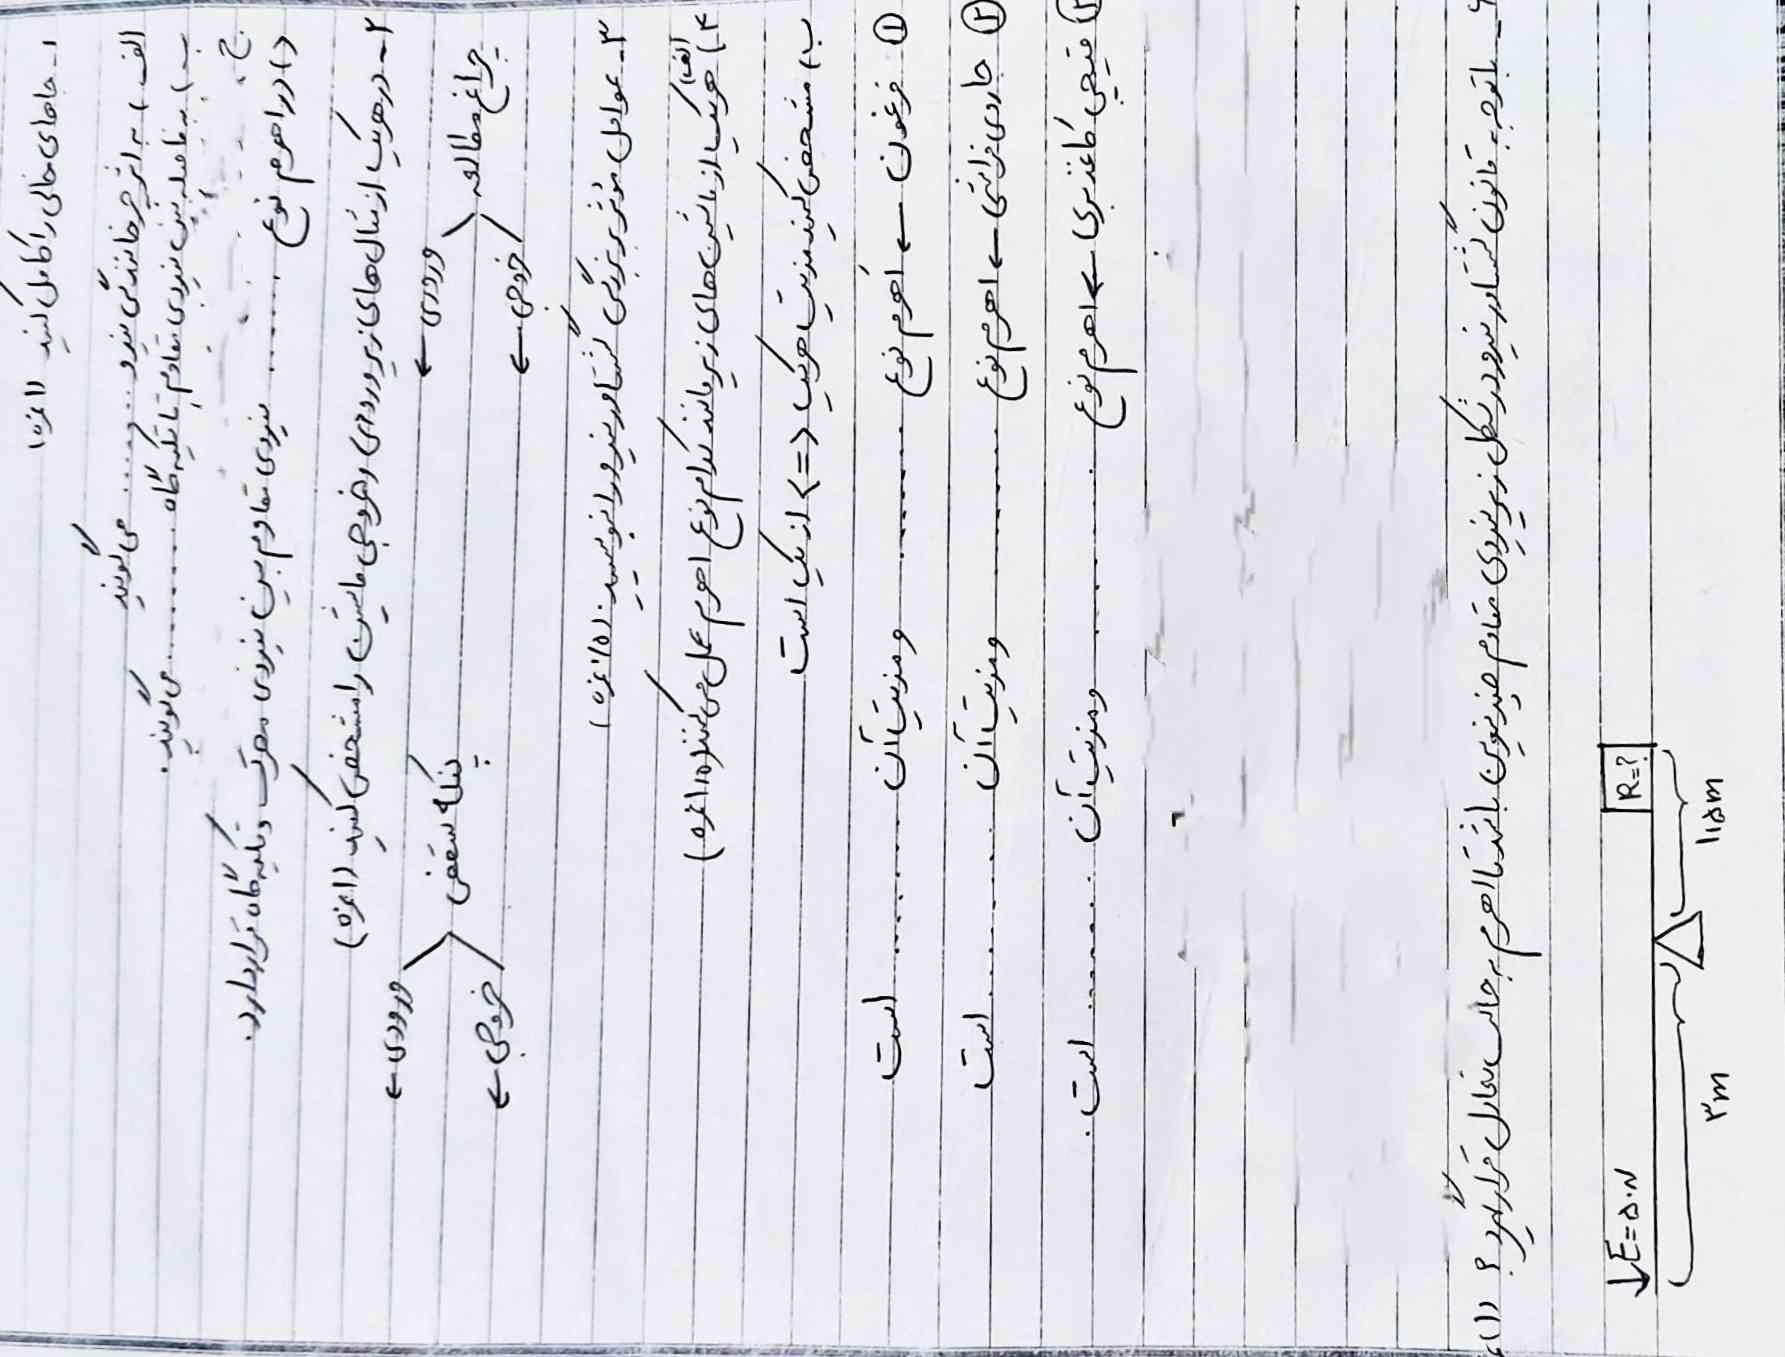 ۱- جاهای خالی را کامل کنید (۱نمره)
الف) به اثر چرخانندگی نیرو ........ می گویند
ب) به فاصله بین نیروی مقاوم تا تکیه گاه ........ می گویند.
ج)
د) در اهرم نوع ........ نیروی مقاوم بین نیروی محرک و تکیه گاه قرار دارد.
۲- در هریک از مثال های زیر ورودی و خروجی ماشین را مشخص کنید (۱نمره)
چراغ مطالعه ورودی ← خروجی ←
پنکه سقفی ورودی ← خروجی ←
۳- عوامل مؤثر بر بزرگی گشتاور نیرو را بنویسید. (۰/۵نمره)
۴- الف) هریک از ماشین های زیر مانند کدام نوع اهرم عمل می کنند (۱/۵نمره)
ب) مشخص کنید مزیت هریک (<=>) از یک است
① فرغون ← اهرم نوع ........ و مزیت آن ........ است
② جاروی فراشی ← اهرم نوع ........ و مزیت آن ........ است
③ قیچی کاغذبری ← اهرم نوع ........ و مزیت آن ........ است.
۶- باتوجه به قانون گشتاور نیرو در شکل زیر نیروی مقاوم چند نیوتن باشد تا اهرم به حالت تعادل قرار گیرد؟ (۱)
R=?
↓E=۵۰N
۱/۵m
۳m